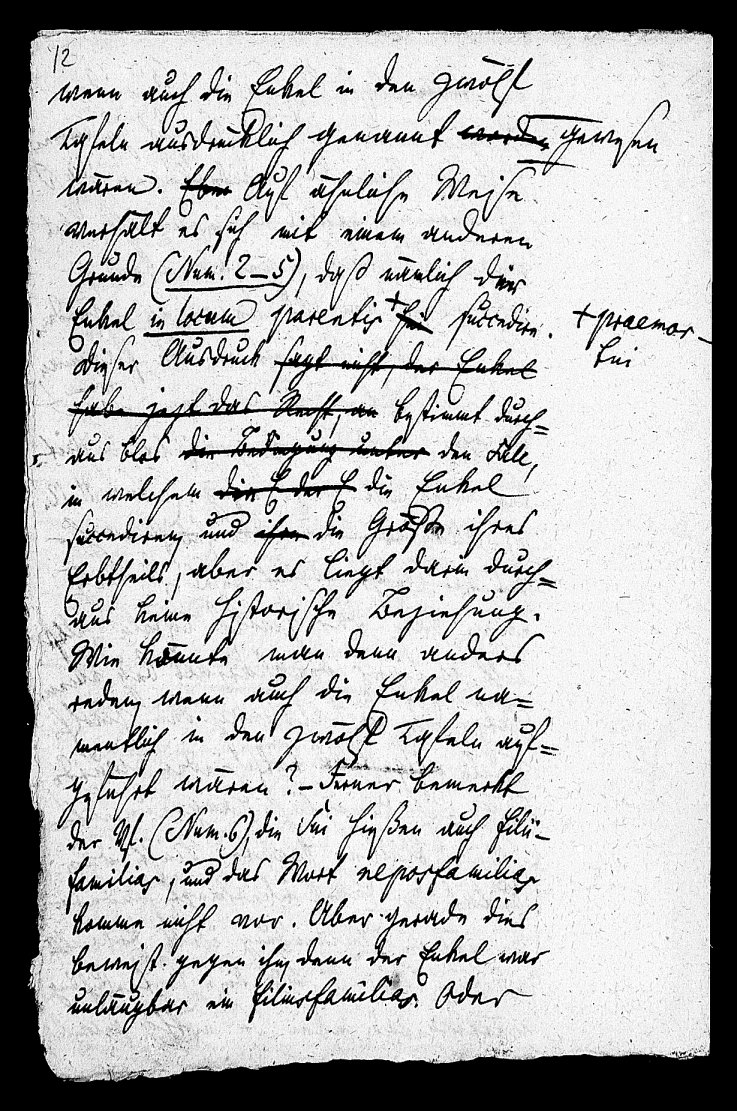 12
wenn auch die Enkel in den zwölf
Tafeln ausdrücklich genannt worden gewesen
wären. Eben Auf ähnliche Weise
verhält es sich mit einem anderen
Grunde (Num. 2–5), daß nämlich die
Enkel in locum parentis + sui succediren.
+ praemor-
tui
Dieser Ausdruck sagt nicht, der Enkel
habe jezt das Recht, an bestimmt durch=
aus blos die Bedingung unter den Fall,
in welchem die E der E die Enkel
succediren, und ihre die Größe ihres
Erbtheils, aber es liegt darin durch=
aus keine historische Beziehung.
Wie könnte man denn anders
reden, wenn auch die Enkel na=
mentlich in den zwölf Tafeln auf=
geführt wären? – Ferner bemerkt
der Vf. (Num. 6), die sui hießen auch filii-
familias, und das Wort neposfamilias
komme nicht vor. Aber gerade dies
beweist gegen ihn, denn der Enkel war
unläugbar ein filiusfamilias. Oder